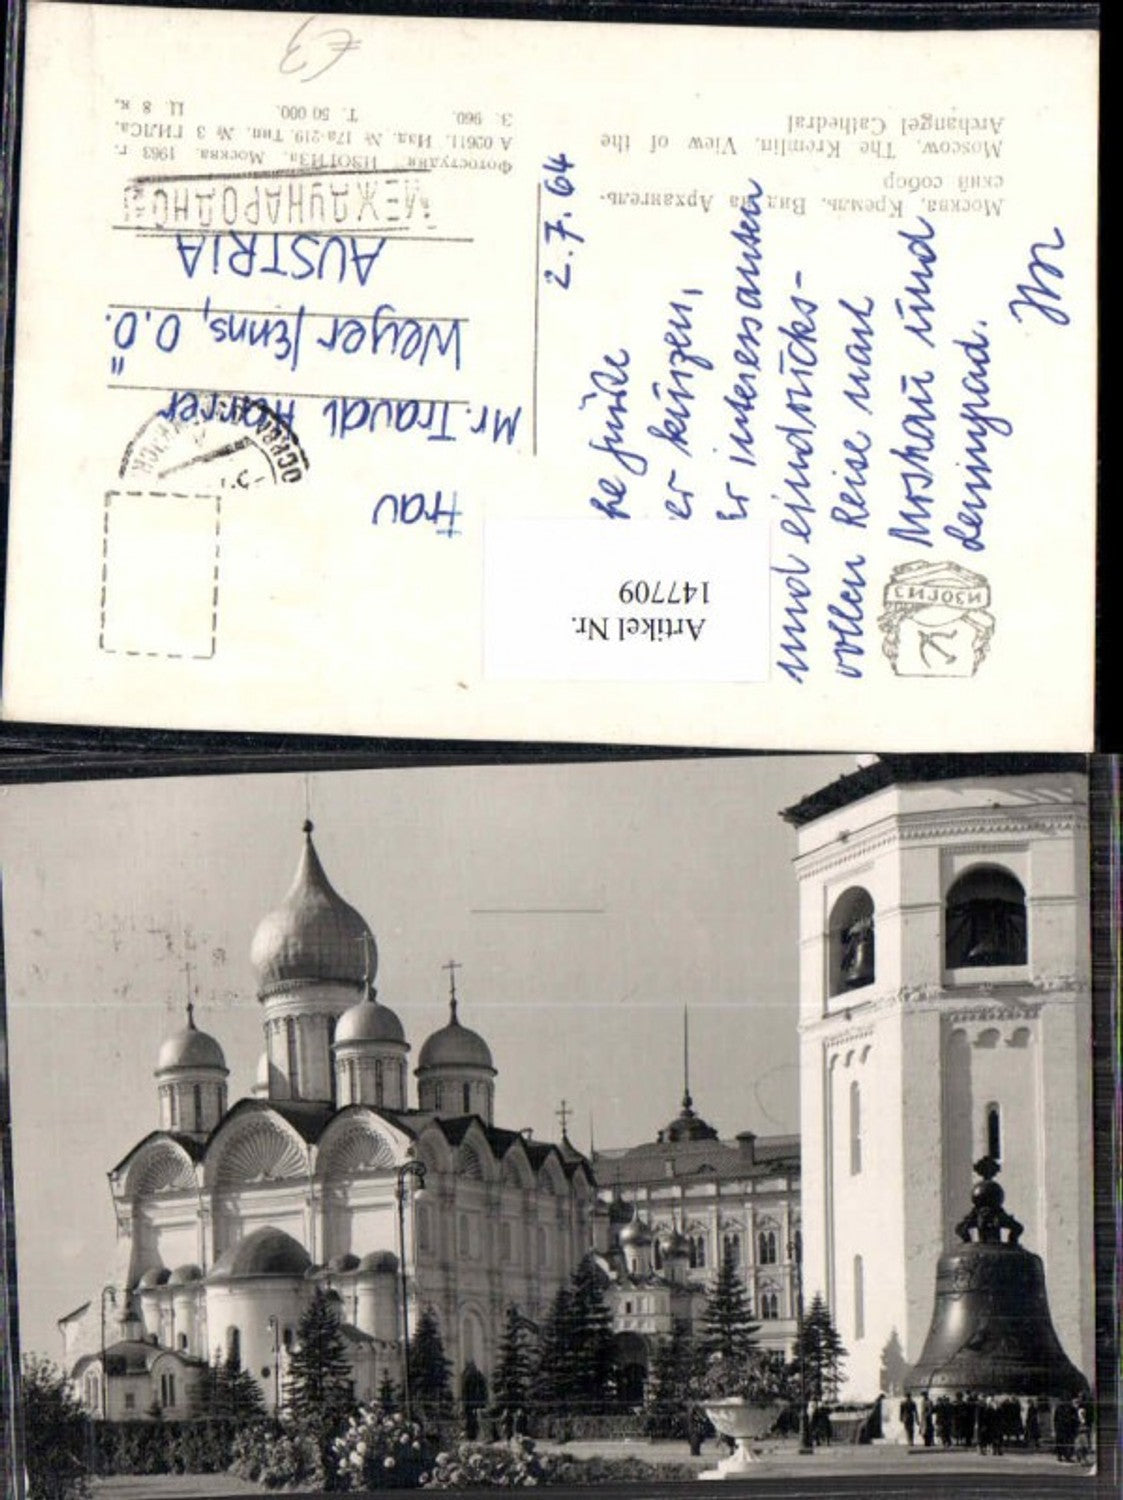 Москва, Кремль. Вид на Архангель-
ский собор
Moscow, The Kremlin. View of the
Archangel Cathedral
Фотостудия ИЗОГИЗа. Москва. 1963 г.
А 02611. Изд. № 17а-219. Тип. № 3 ГИЛСа.
З. 960. Т. 50 000. Ц. 8 к.
€3
МЕЖДУНАРОДНОЕ
ИЗОГИЗ
Artikel Nr.
147709
2.7.64
kürzen,
interessanten
und eindrucks-
vollen Reise nach
Moskau und
Leningrad.
Frau
Mr. Traudl Harrer
Weyer/Enns, O.Ö.
AUSTRIA